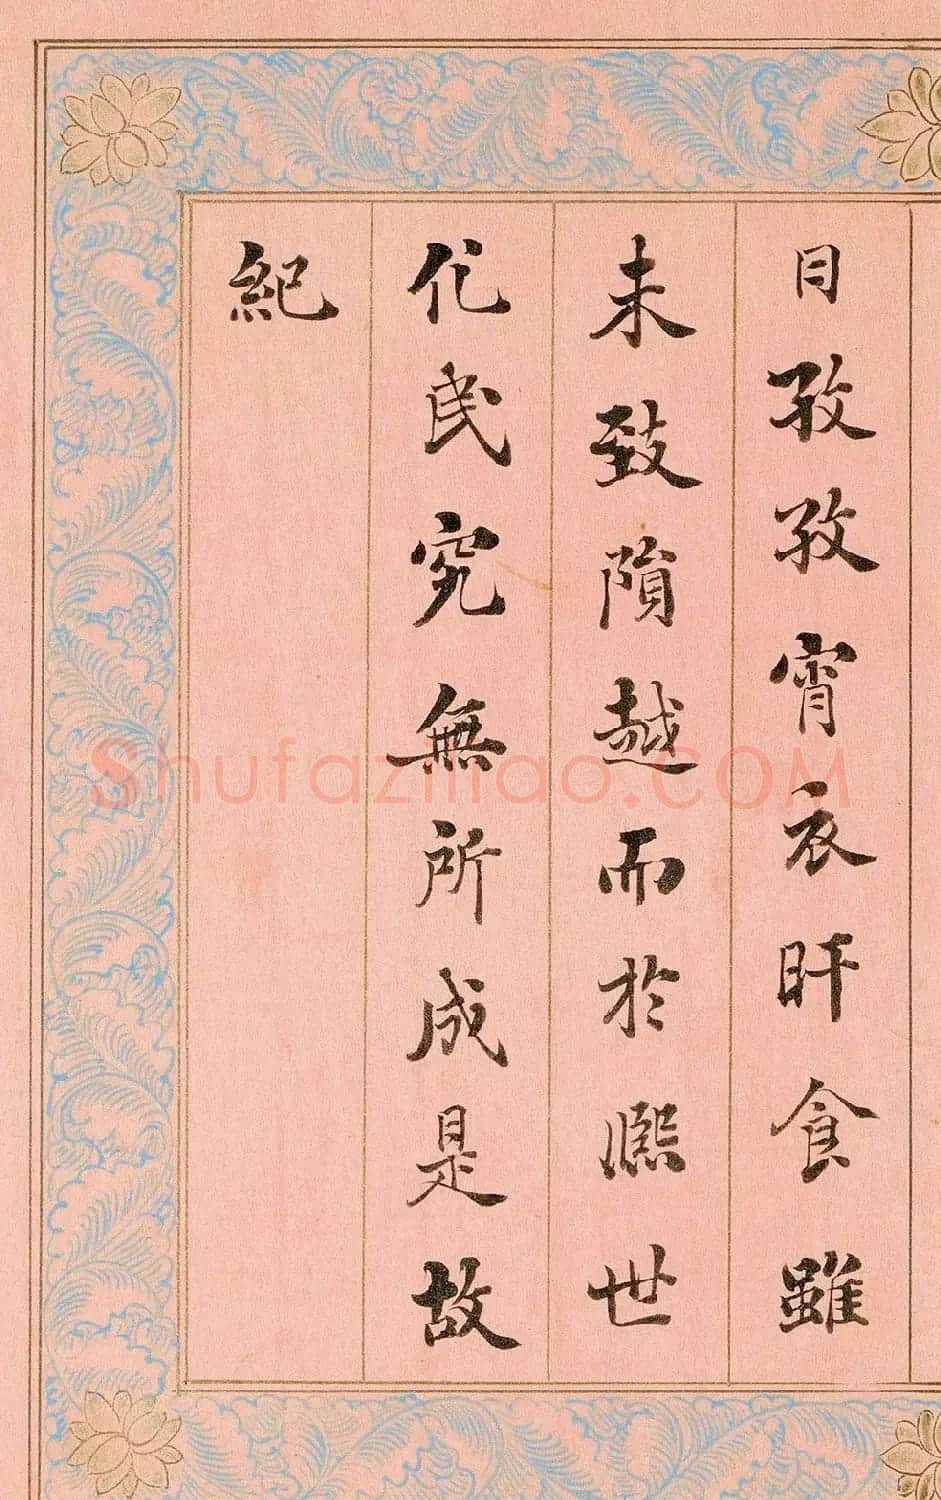 日孜孜宵衣旰食雖
未致隕越而於熈世
化民究無所成是故
紀
Shufaziliao.COM